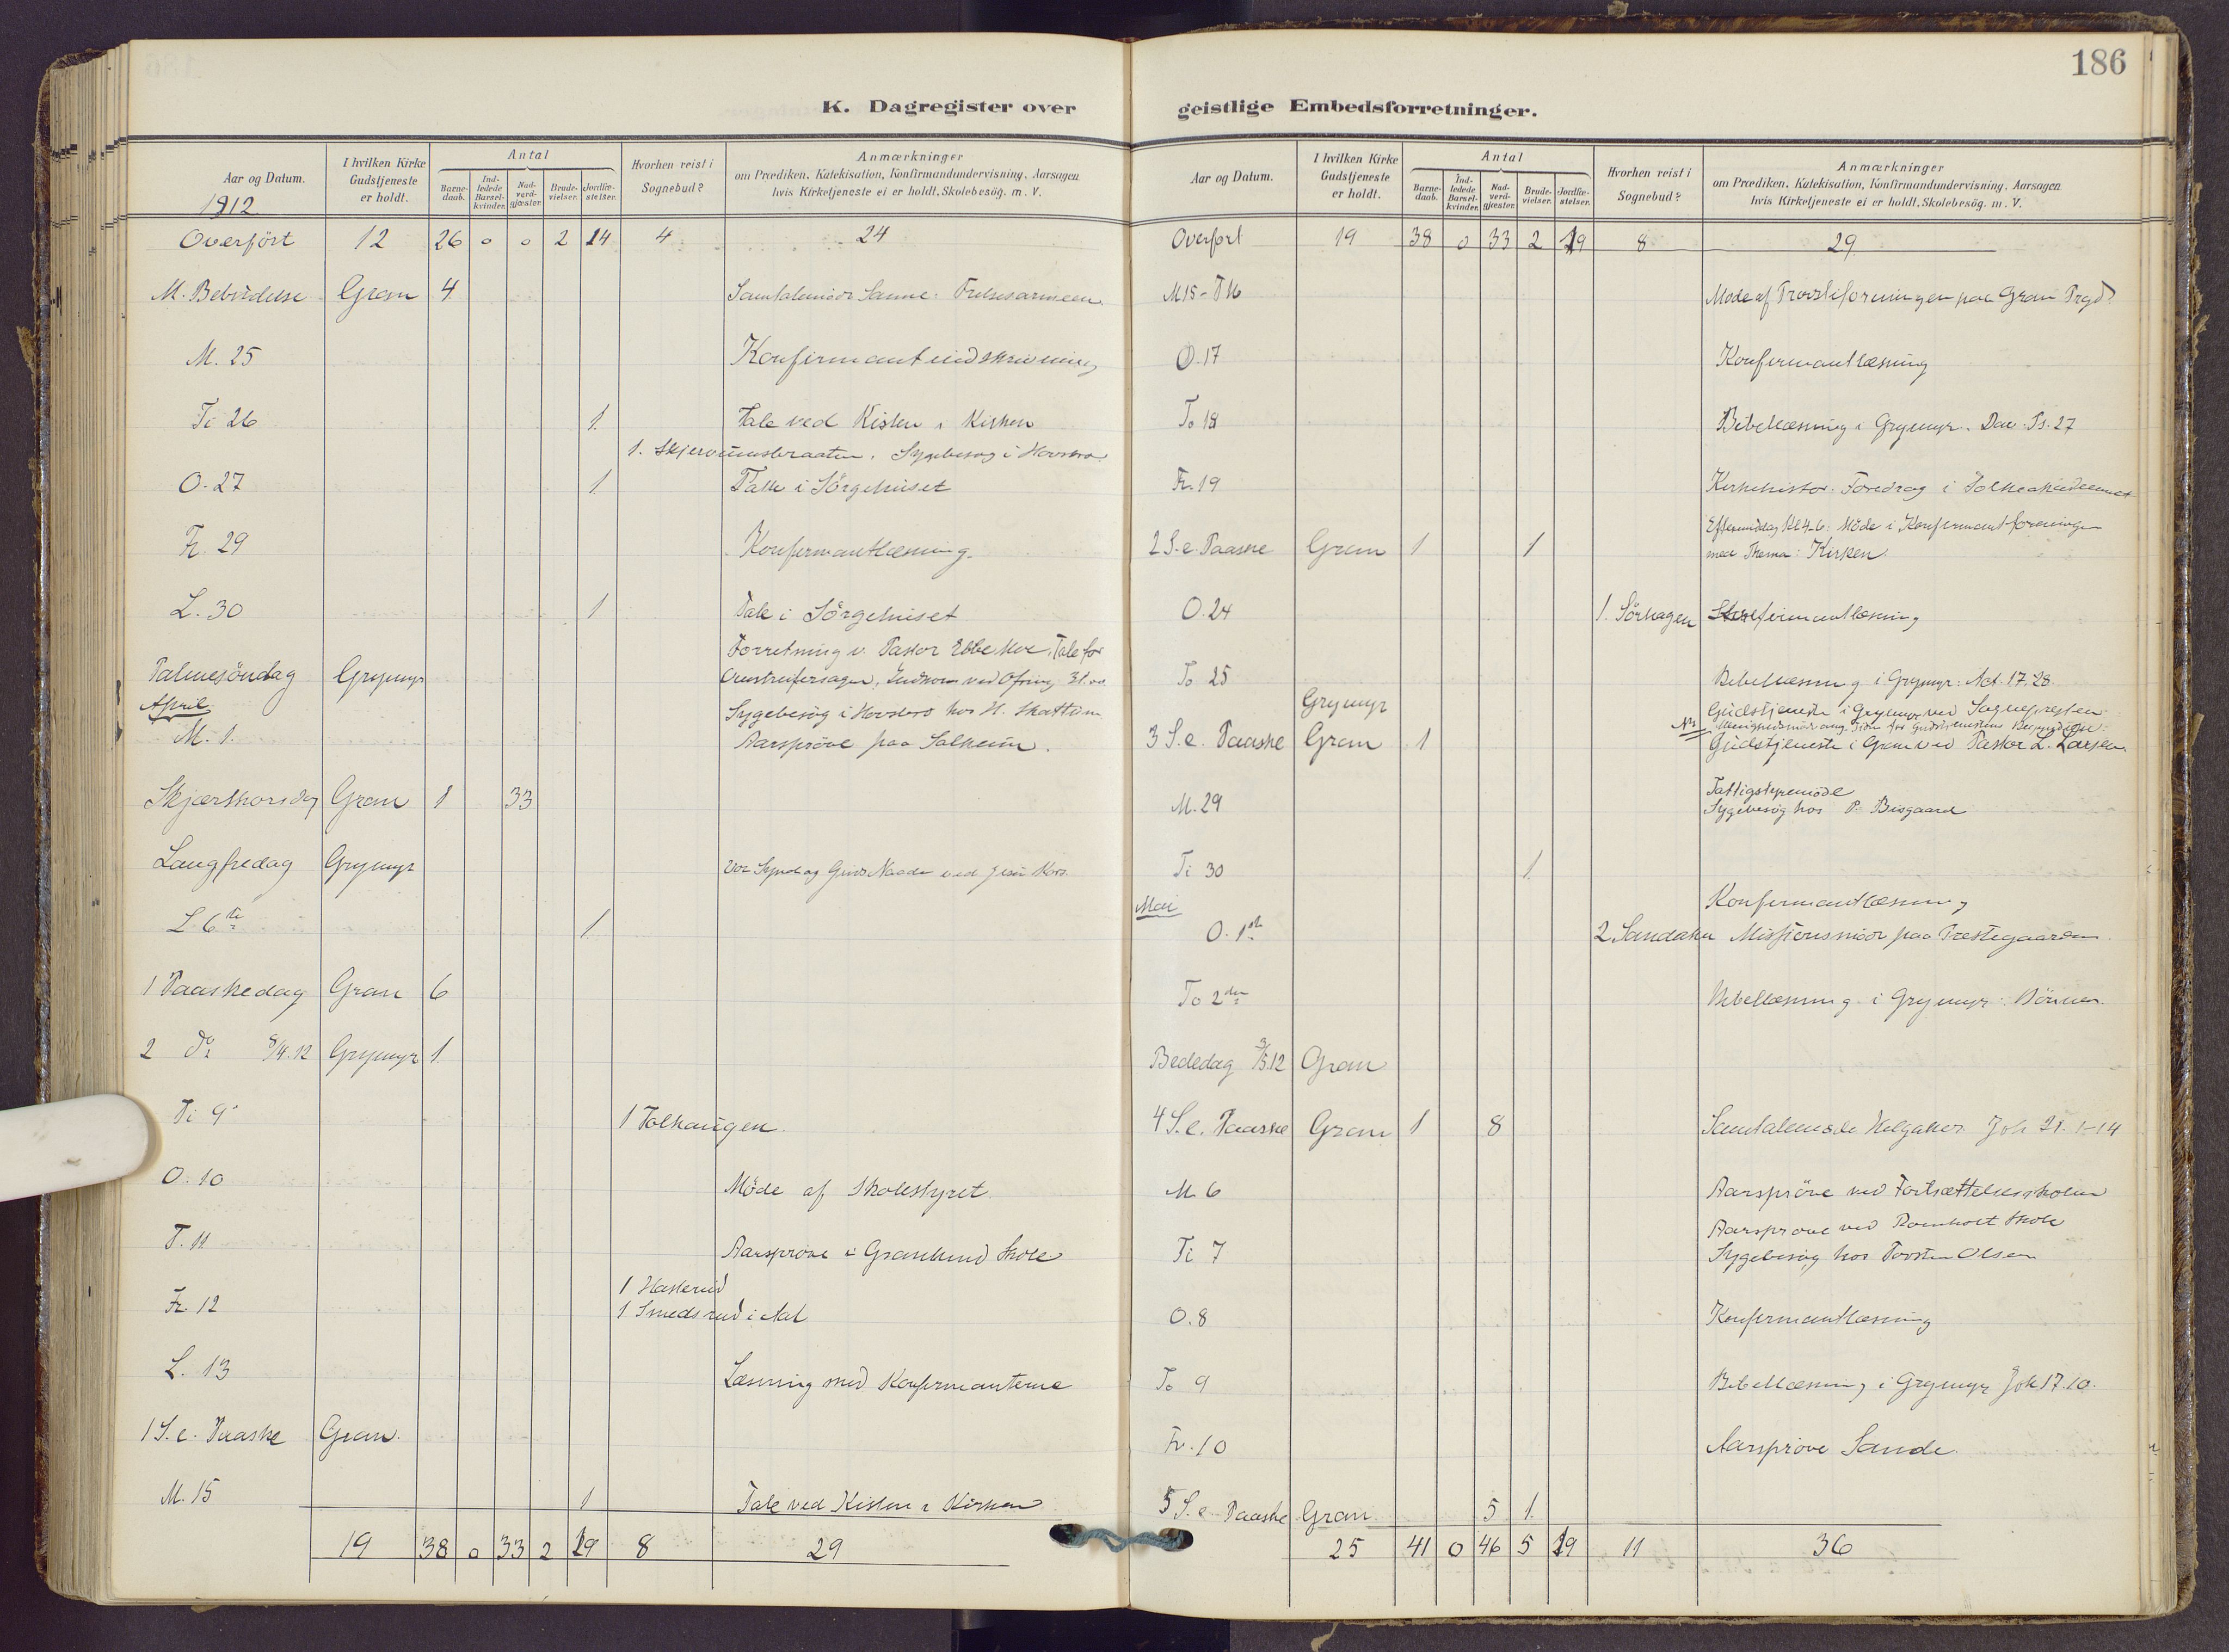 186
K. Dagregister over geistlige Embedsforretninger.
Aar og Datum.
1912
I hvilken Kirke Gudstjeneste er holdt.
Antal
Barnedaab.
Indledede Barselkvinder.
Nadverdgjæster.
Brudevielser.
Jordfæstelser.
Hvorhen reist i Sognebud?
Anmærkninger
om Prædiken, Katekisation, Konfirmandundervisning, Aarsagen
hvis Kirketjeneste ei er holdt, Skolebesög. m. V.
Overfört 12 26 0 0 2 14 4 24
M. Bebudelse Gran 4 Samtalemöde Sanne. Frelsesarmeen.
M. 25 Konfirmantindskrivning
Ti 26 1 Tale ved Kisten i Kirken
1. Skjervumsbraaten. Sygebesög i
O. 27 1 Tale i Sörgehuset
Fr. 29 Konfirmantlæsning.
L. 30 1 Tale i Sörgehuset
Forretning v. Pastor Tale for
Palmesöndag Grymyr Omstreifersagen, Indkom ved Ofring 31.00
April
Sygebesög i hos H.
M. 1. Aarspröve paa Solheim.
Skjærthorsdag Gran 1 33
Langfredag Grymyr Vor Synd og Guds Naade ved Jesu Kors.
L. 6te 1
1 Paaskedag Gran 6
2 do 8/4.12 Grymyr 1
Ti 9 1 Tolhaugen
O. 10 Möde af Skolestyret
T. 11 Aarspröve i Granlund Skole
1 Haslerud
Fr. 12 1 Smedsrud i Aal
L. 13 Læsning med Konfirmanterne
1 S. e. Paaske Gran.
M. 15 1 Tale ved Kisten i Kirken
19 38 0 33 2 19 8 29
Aar og Datum.
I hvilken Kirke Gudstjeneste er holdt.
Antal
Barnedaab.
Indledede Barselkvinder.
Nadverdgjæster.
Brudevielser.
Jordfæstelser.
Hvorhen reist i Sognebud?
Anmærkninger
om Prædiken, Katekisation, Konfirmandundervisning, Aarsagen
hvis Kirketjeneste ei er holdt, Skolebesög. m. V.
Overfört 19 38 0 33 2 19 8 29
M 15 - T 16 Möde af Provstiforeningen paa Gran Prgd.
O. 17 Konfirmantlæsning
To 18 Bibellæsning i Grymyr. Dav. Ps. 27
Fr. 19 Kirkehistor. Foredrag i
Eftermiddag Kl 4-6: Möde i Konfirmantforeningen
2 S. e. Paaske Gran 1 1 med Thema: Kirken.
O. 24 1. Sörhagen Konfirmantlæsning
To 25 Bibellæsning i Grymyr: Act. 17.28
Grymyr Gudstjeneste i Grymyr ved Sognepresten.
3 S. e. Paaske Gran 1 Gudstjeneste i Gran ved Pastor L. Larsen.
M. 29 Fattigstyremöde
Sygebesög hos P. Bisgaard
Ti 30 1
Mai
Konfirmantlæsning
O. 1ste 2 Sandaker Missionsmöde paa Prestegaarden.
To 2den Bibellæsning i Grymyr: Bönnen.
Bededag 3/5.12 Gran
4 S. e. Paaske Gran 1 8 Samtalemöde Helgaker Joh 21. 1-14
M. 6 Aarspröve ved Fortsættelsesskolen
Aarspröve ved Romholt Skole
Ti 7 Sygebesög hos Torsten Olsen
O. 8 Konfirmantlæsning
To 9 Bibellæsning i Grymyr Joh 17.10.
Fr. 10 Aarspröve Sande.
5 S. e. Paaske Gran 5 1.
25 41 0 46 5 19 11 36